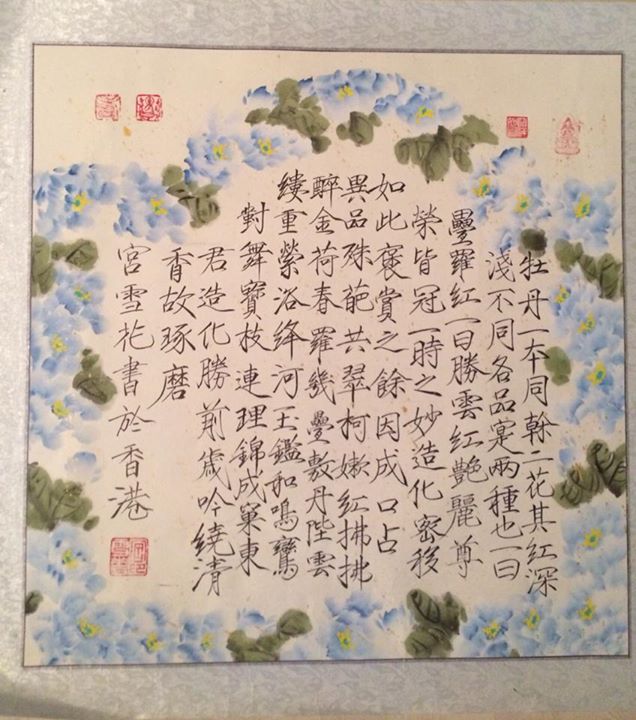 牡丹一本同榦二花其紅深
淺不同各品寔兩種也一曰
疊羅紅一曰勝雲紅艷麗尊
榮皆冠一時之妙造化密移
如此褒賞之餘因成口占
異品殊葩共翠柯嫩紅拂拂
醉金荷春羅幾疊敷丹陛雲
縷重縈浴絳河玉鑑和鳴鸞
對舞寶枝連理錦成窠東
君造化勝前歲吟繞清
香故琢磨
宮雪花書於香港